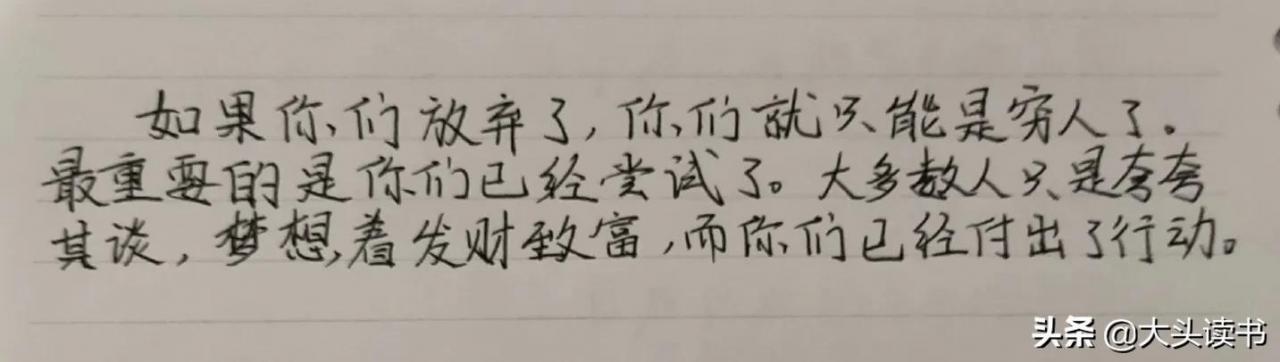 如果你们放弃了,你们就只能是穷人了。
最重要的是你们已经尝试了。大多数人只是夸夸
其谈,梦想着发财致富,而你们已经付出了行动。
头条 @大头读书